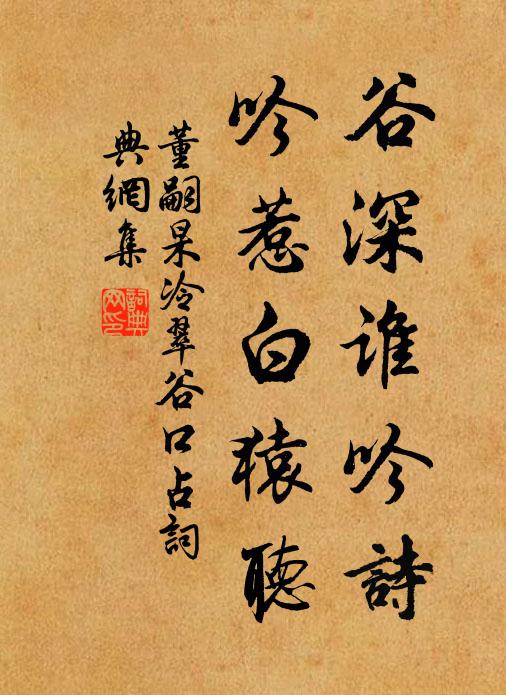 谷深谁吟詩
吟惹白猿聽
董嗣杲冷翠谷口占詞
典網集
詞典網印